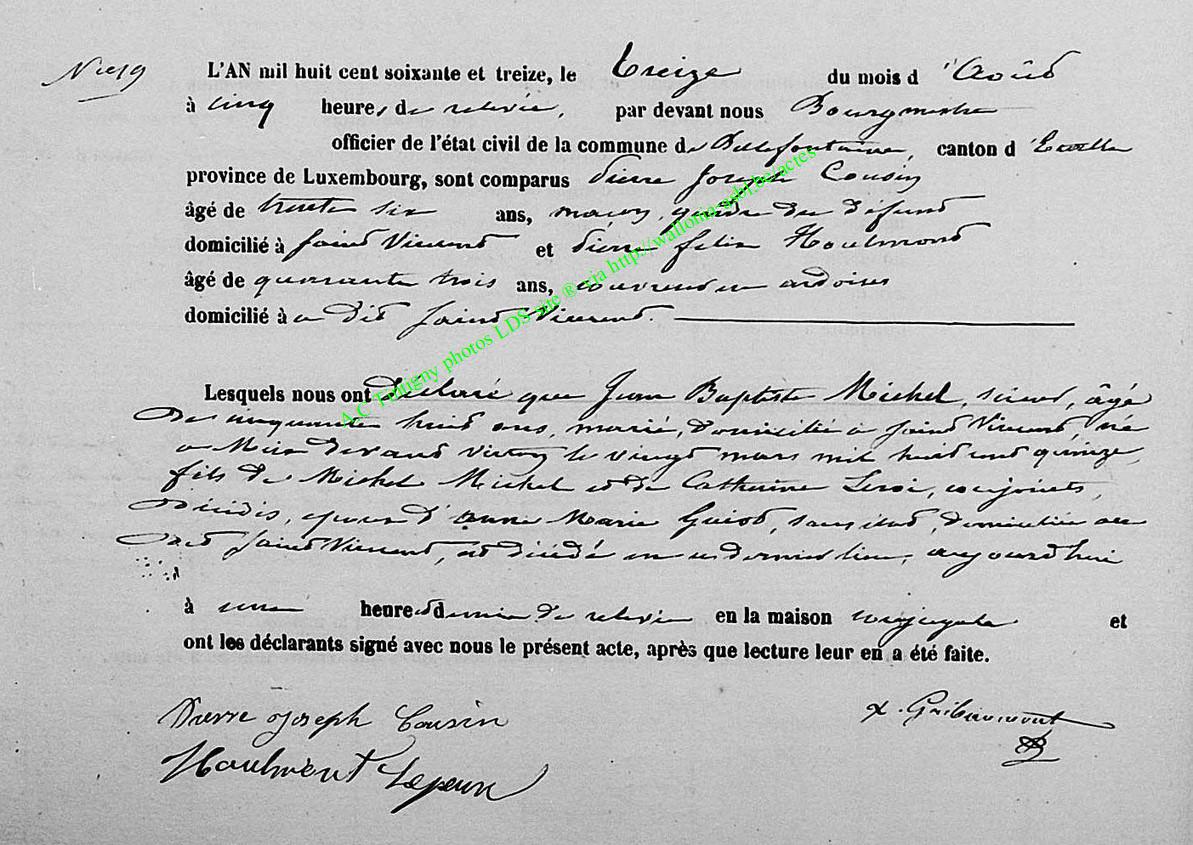 N° 19
L'AN mil huit cent soixante et treize, le treize du mois d'Août
à cinq heures de relevée, par devant nous Bourgmestre
officier de l'état civil de la commune de Bellefontaine, canton d'Etalle
province de Luxembourg, sont comparus Pierre Joseph Cousin
âgé de trente six ans, maçon, gendre du défunt
domicilié à Saint Vincent et Pierre Felix Houlmont
âgé de quarante trois ans, couvreur en ardoises
domicilié à u dit Saint Vincent.
Lesquels nous ont déclaré que Jean Baptiste Michel, , âgé
de cinquante huit ans, marié, domicilié à Saint Vincent, né
a Meix devant Virton le vingt mars mil huit cent quinze,
fils de Michel Michel et de Catherine Leroi, conjoints,
décédés, époux d'Anne Marie Guiot, sans état, domiciliée au
dit Saint Vincent, est décédé en ce dernier lieu, aujourd'hui
à une heure et demie de relevée en la maison conjugale et
ont les déclarants signé avec nous le présent acte, après que lecture leur en a été faite.
Pierre Joseph Cousin
Houlmont Lejeune
A.C Tintigny photos LDS site ® via http://wallonia-asbl.be/actes